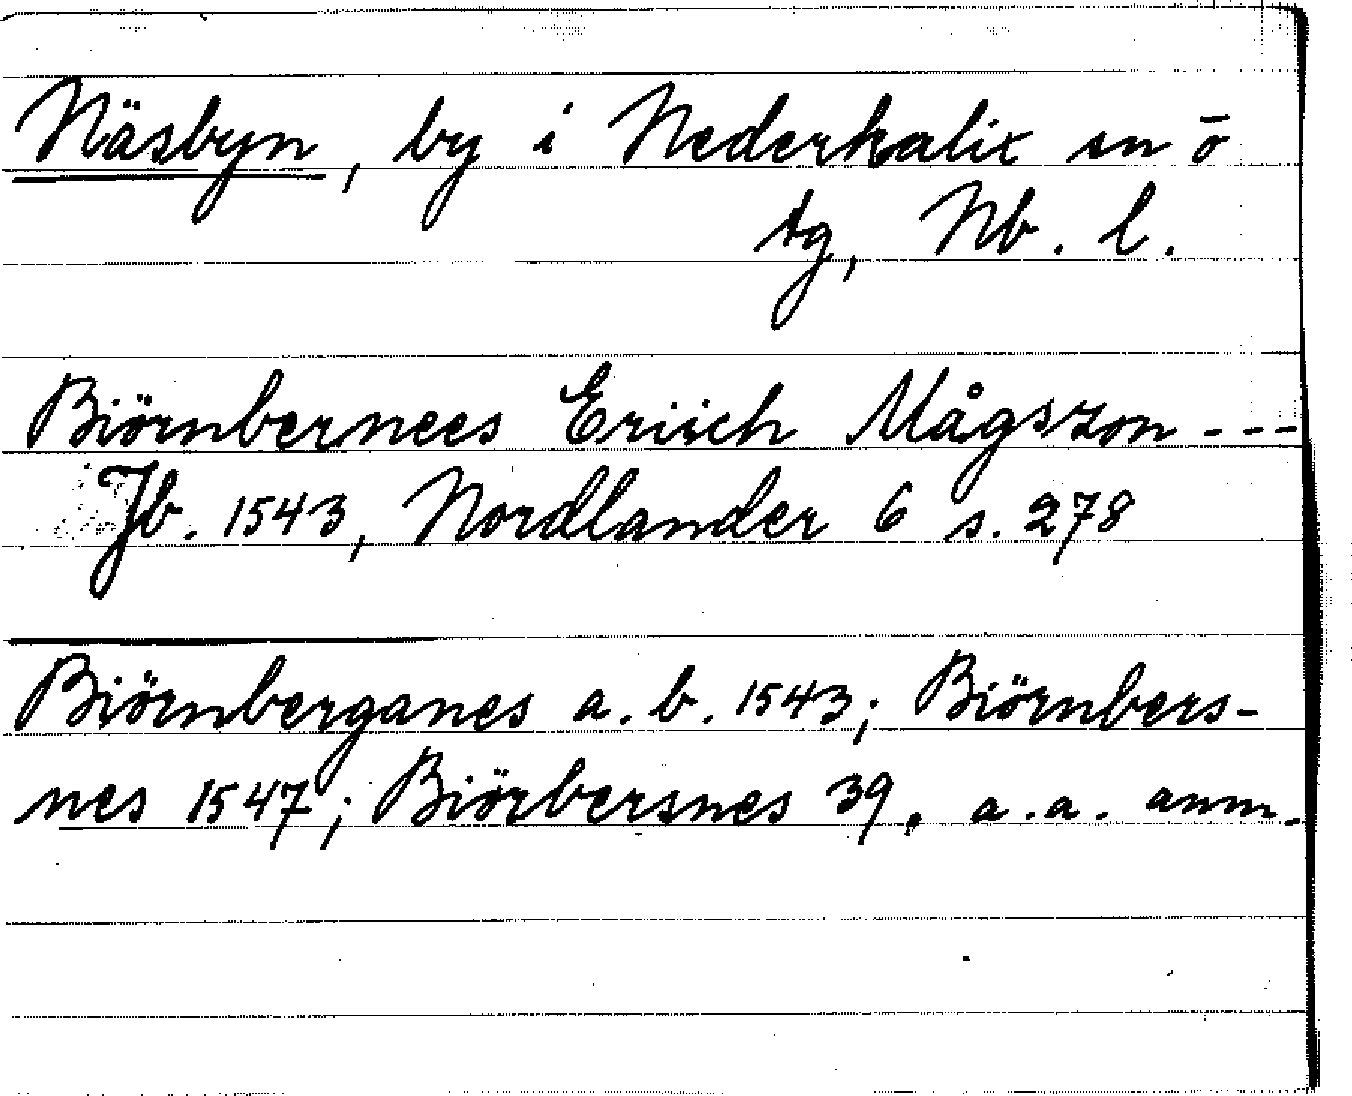 Näsbyn, by i Nederkalix sn ō
tg, Nb. l.
Biörnbernees Eriich Mågszon ---
Jb. 1543, Nordlander 6 s. 278
Biörnberganes a. b. 1543; Biörnbers-
nes 1547; Biörbersnes 39. a.a. anm.